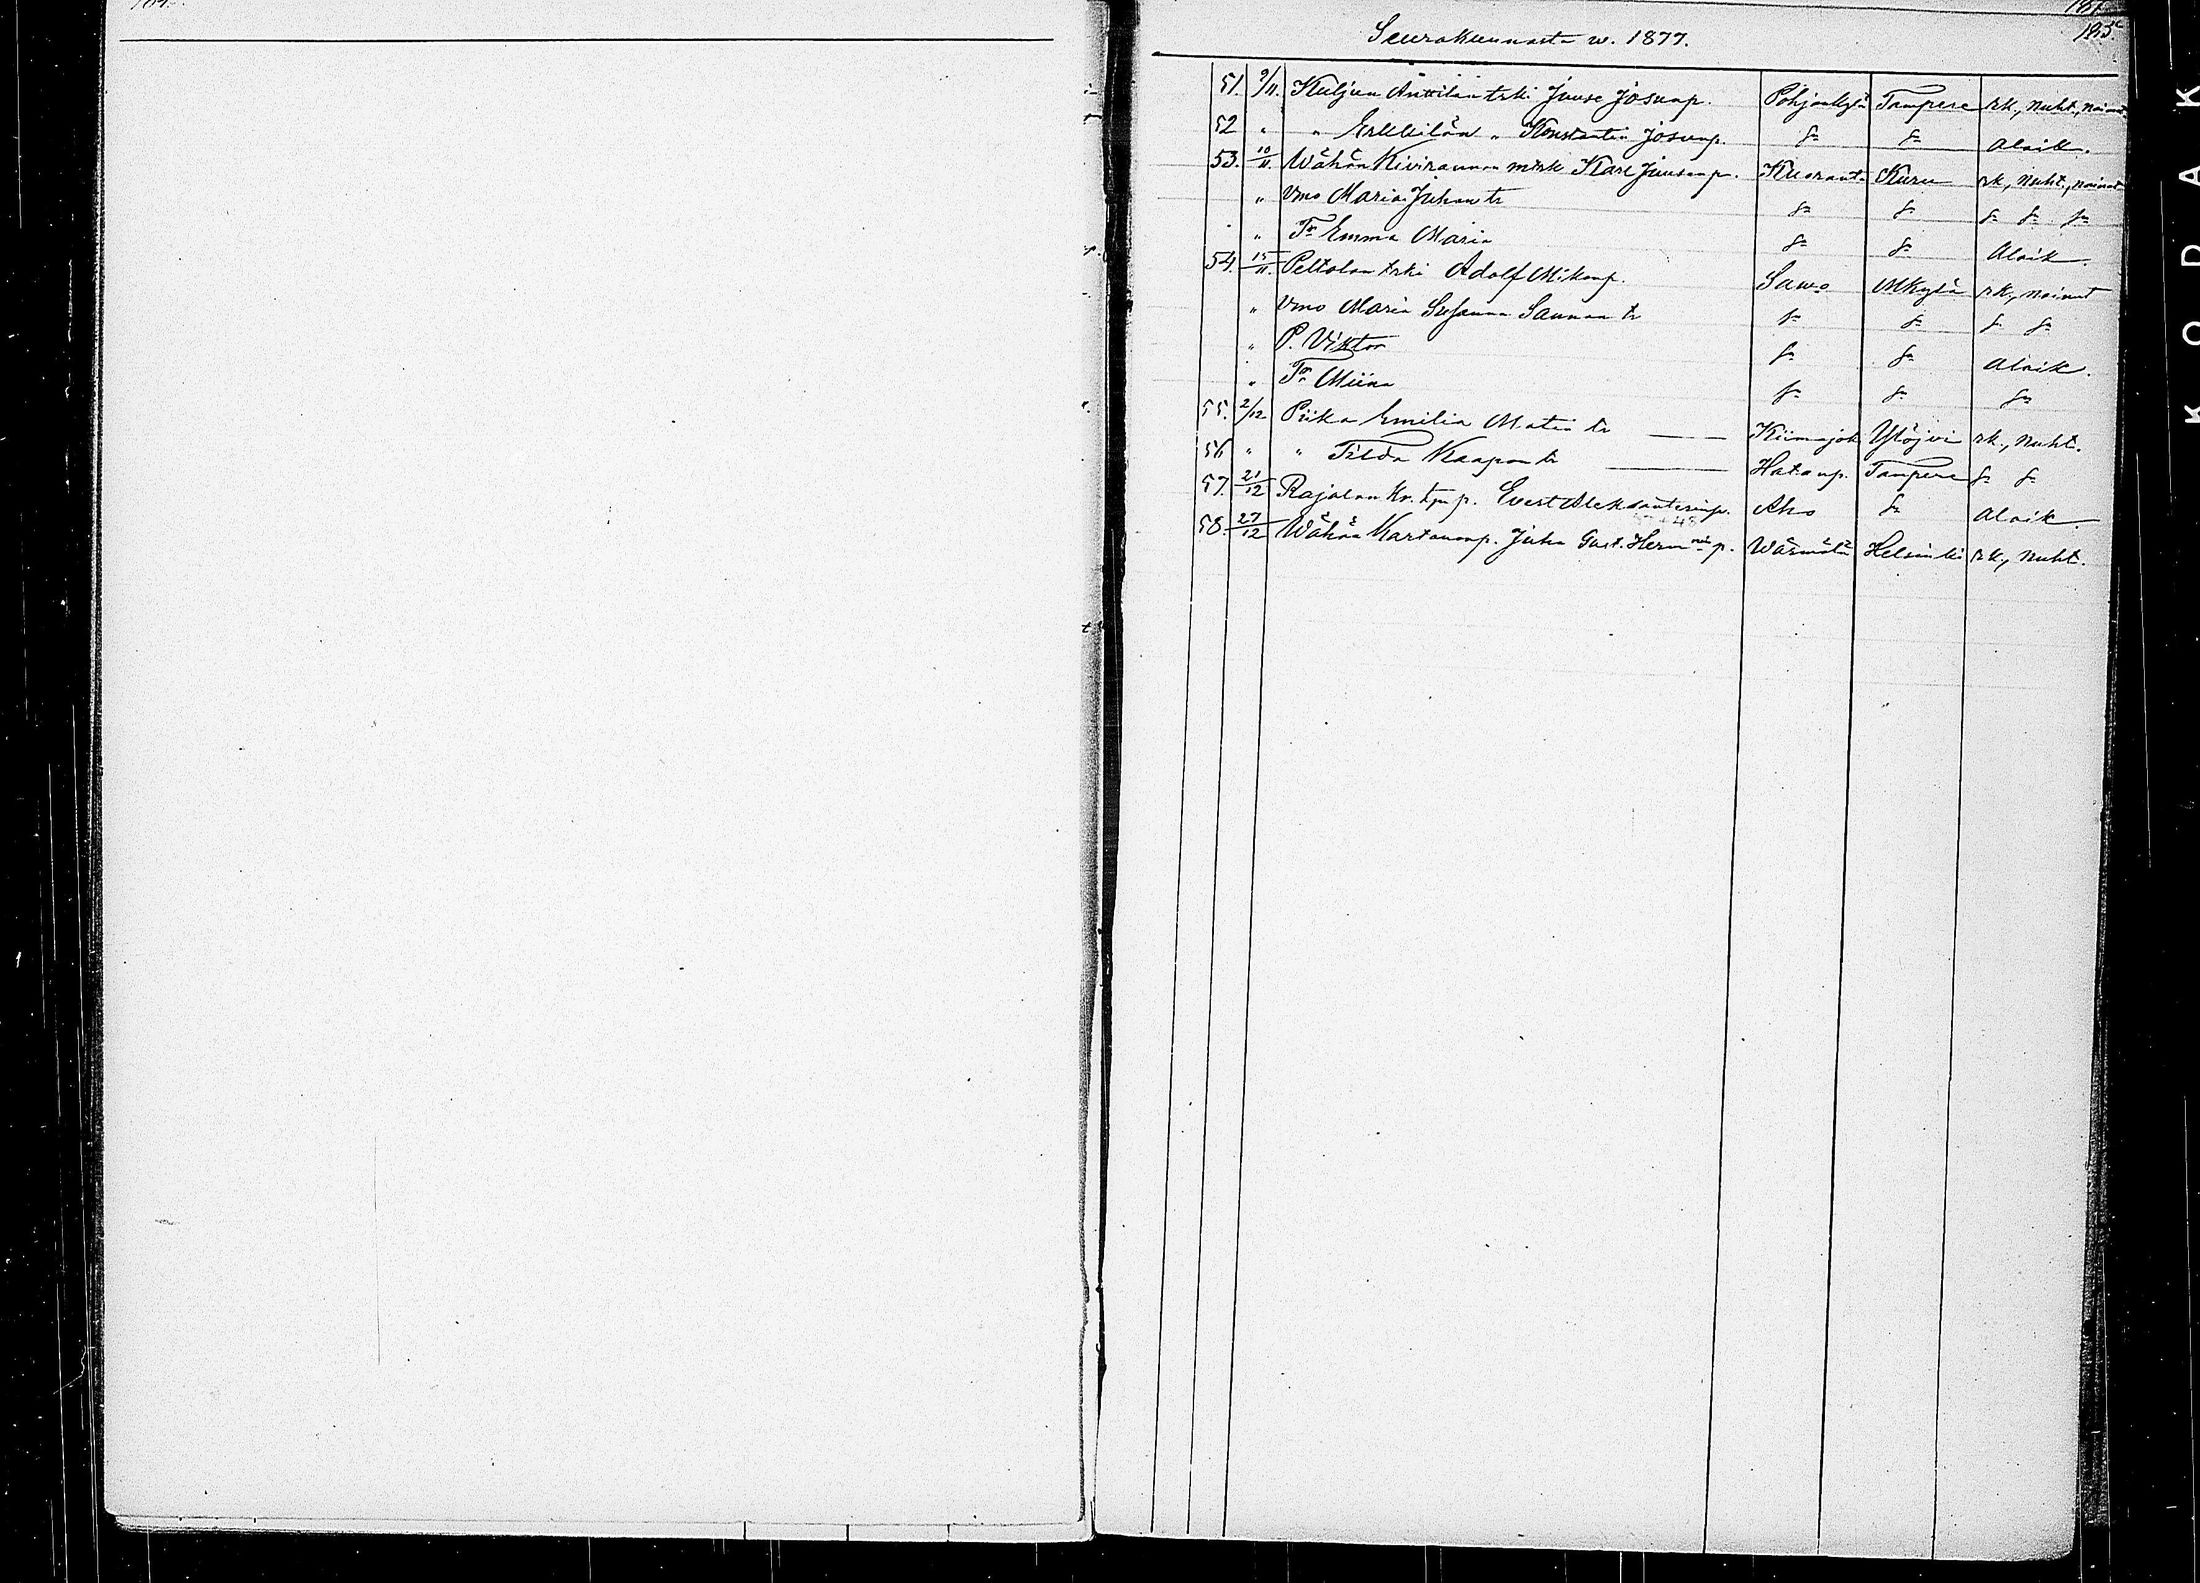 Seurakunnasta w. 1877.
185.
51. 9/11. Kuljun Anttilan trki Juuse Josuap. Pohjankylä Tampere rk., nuht., nainut
52 " " Erkkilän " Konstantin Josuap. do do Alaik.
53. 10/11. Wähän Kiviraunan mtrk Karl Juusenp. Kuorant. Kuru rk., nuht., nainut
" Vmo Maria Juhan tr do do do do do
" Tr Emma Maria do do Alaik.
54. 15/11. Peltolan trki Adolf Mikonp. Sawo MKylä rk., nainut
" Vmo Maria Susanna Saunan tr do do do do
" P. Viktor do do Alaik.
" Tr Miina do do do
55. 2/12. Piika Emilia Matin tr Kiimajok Ylöjvi rk., nuht.
56 " " Tilda Kaapon tr Hatanp. Tampere do do
57. 21/12 Rajalan Kr. tpu p. Evert Aleksanterinp. Aho do Alaik.
58. 27/12 Wähän Kartanonp. Juha Gust. Herm nin p. Wärmälä Helsinki rk., nuht.
KODAK